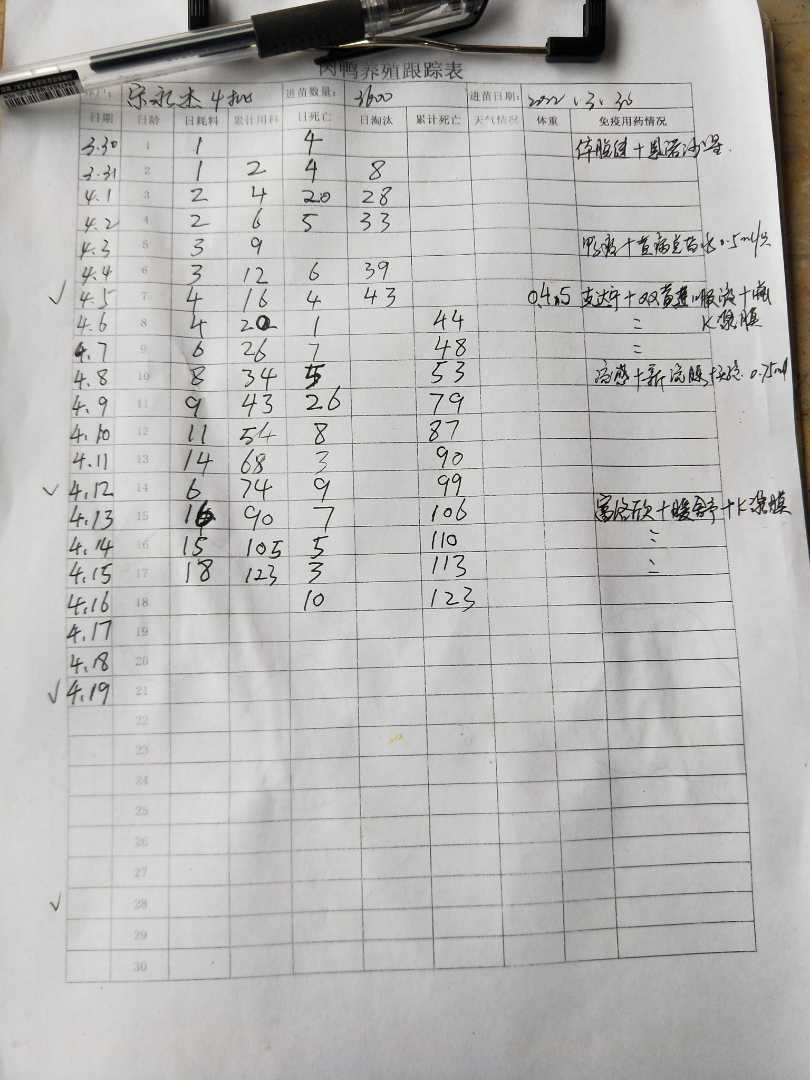 肉鸭养殖跟踪表
户: 宋永杰 4批 进苗数量: 3600 进苗日期: 2022.3.30
日期 日龄 日耗料 累计用料 日死亡 日淘汰 累计死亡 天气情况 体重 免疫用药情况
3.30 1 1 4
3.31 2 1 2 4 8
4.1 3 2 4 20 28
4.2 4 2 6 5 33
4.3 5 3 9 0.5ml/只
4.4 6 3 12 6 39
√ 4.5 7 4 16 4 43 0.4,5 支达宁+双黄连口服液+
K 浆膜
4.6 8 4 20 1 44 =
4.7 9 6 26 7 48 =
4.8 10 8 34 5 53 流感+新流 0.75ml
4.9 11 9 43 26 79
4.10 12 11 54 8 87
4.11 13 14 68 3 90
√ 4.12 14 6 74 9 99
4.13 15 16 90 7 106 +K浆膜
4.14 16 15 105 5 110 =
4.15 17 18 123 3 113 =
4.16 18 10 123
4.17 19
4.18 20
√ 4.19 21
22
23
24
25
26
27
√ 28
29
30